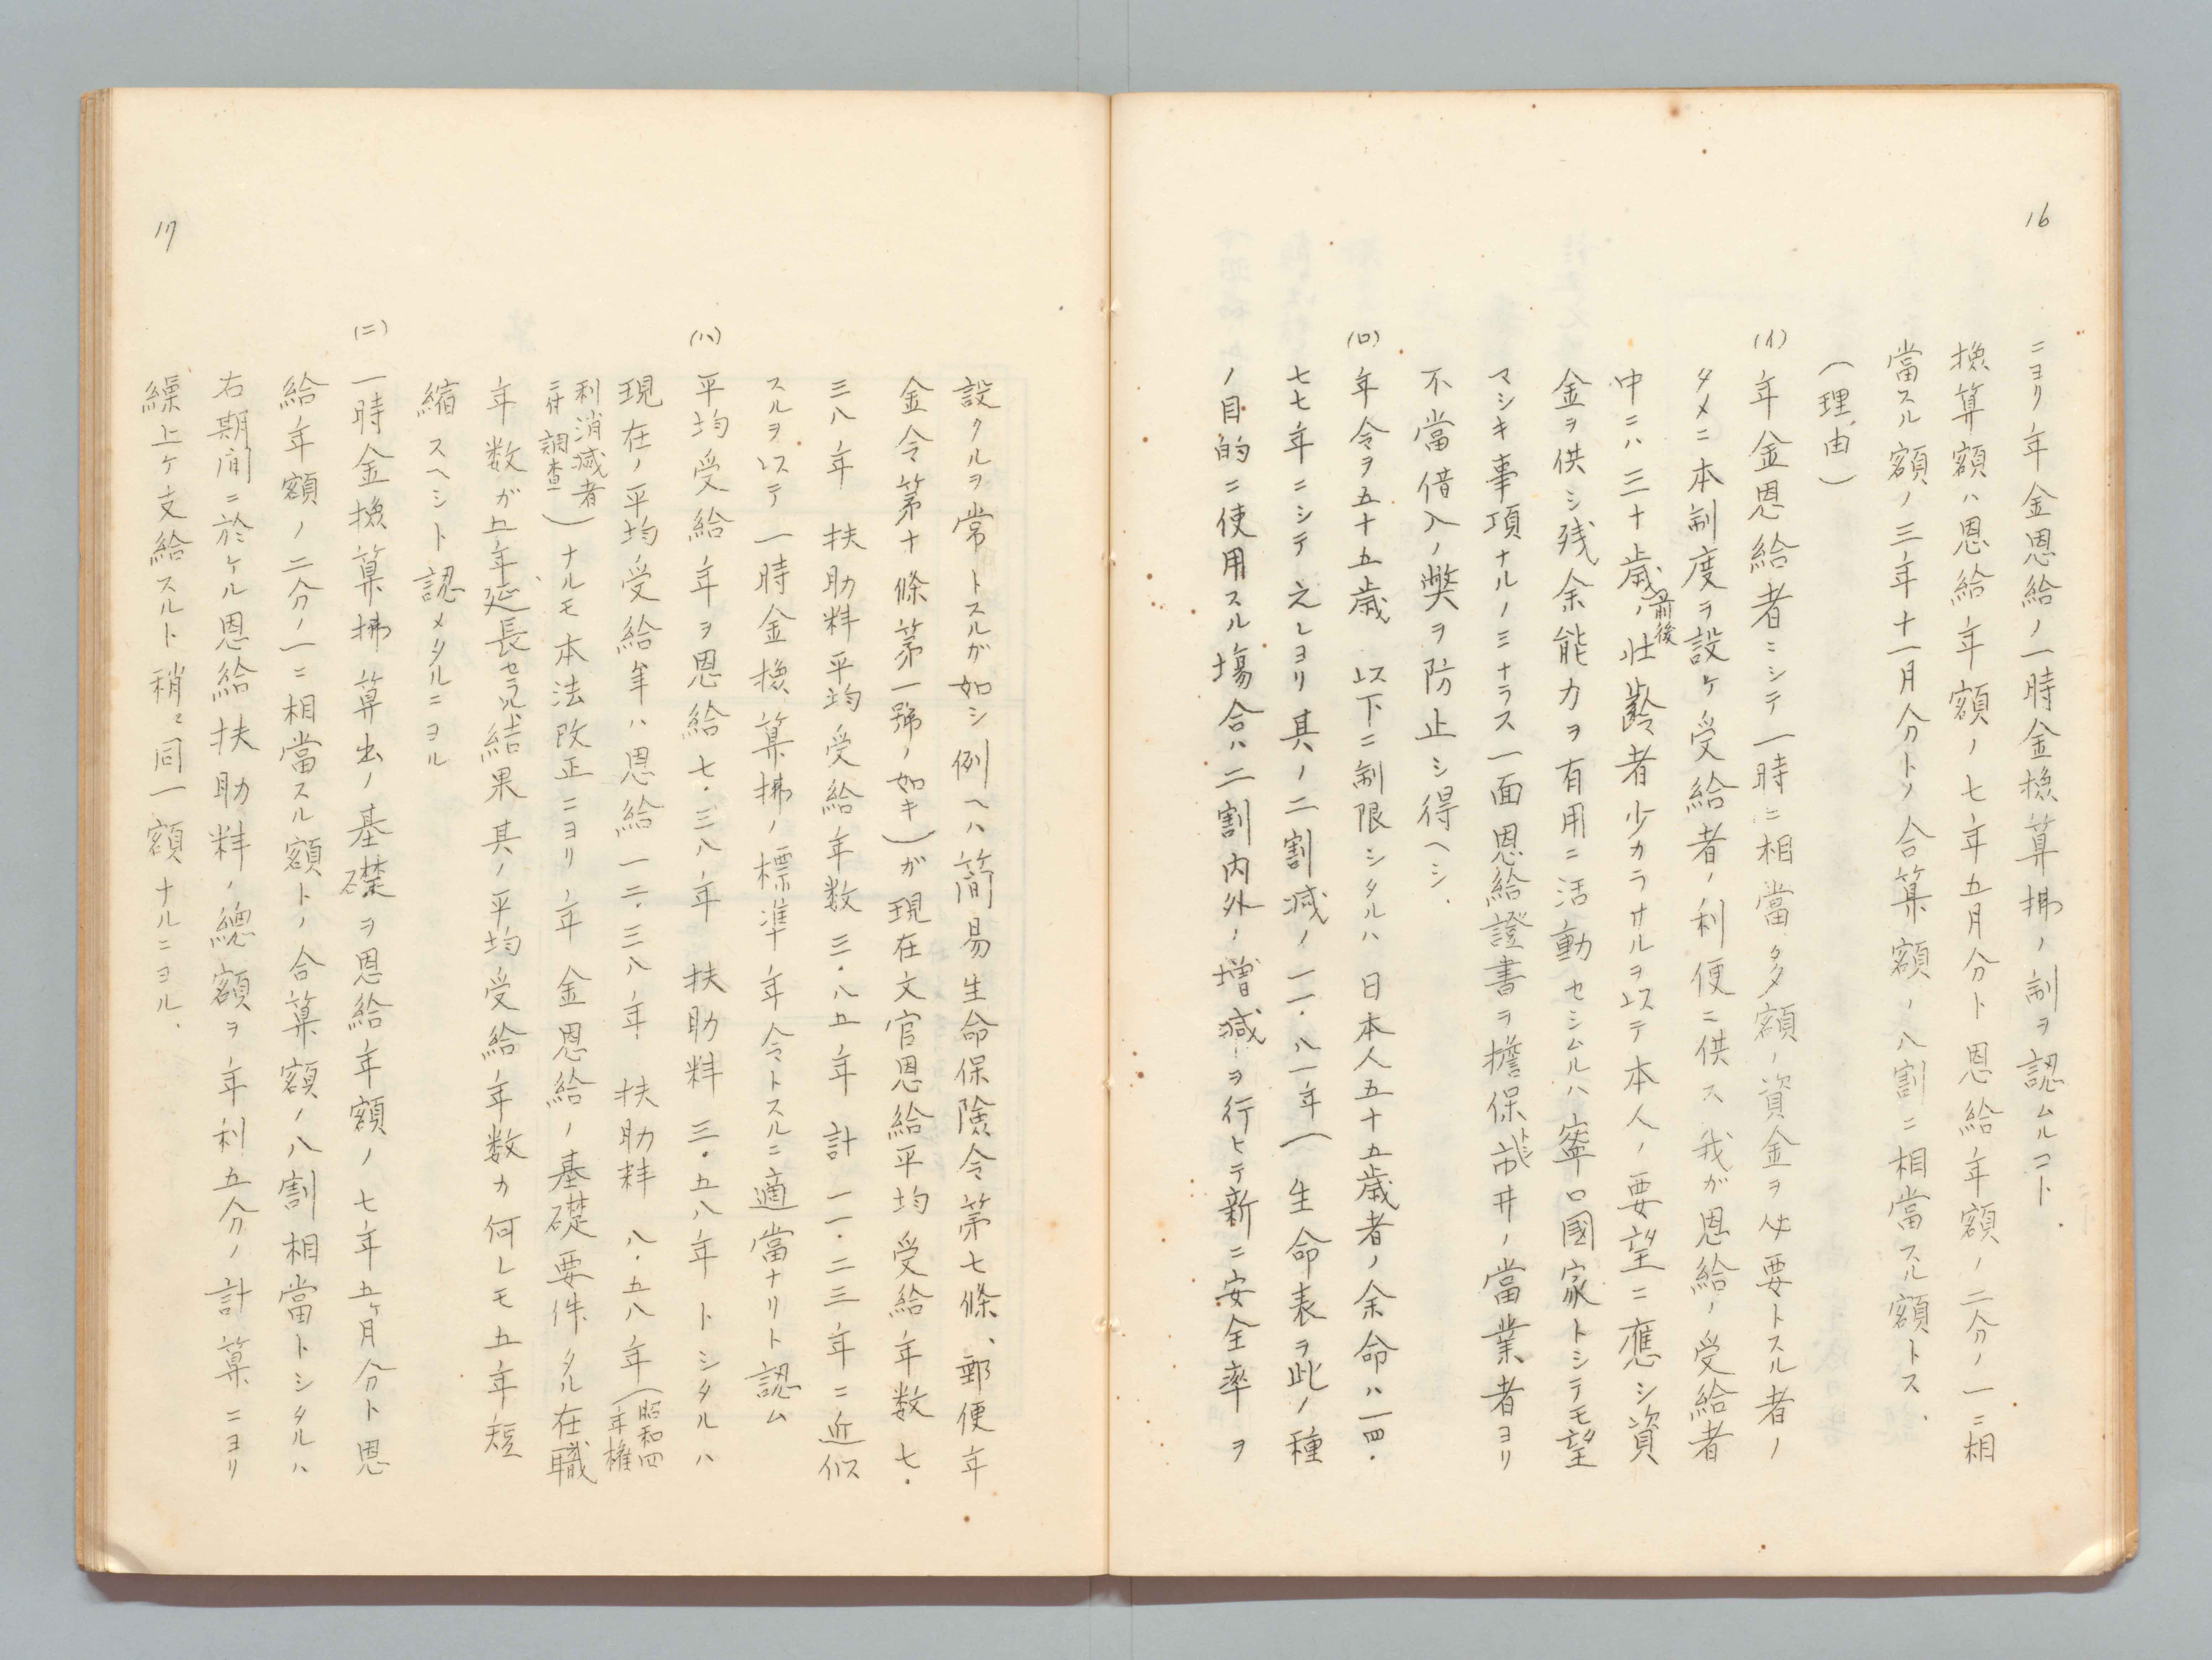 16
ニヨリ年金恩給ノ一時金換算拂ノ制ヲ認ムルコト.
換算額ハ恩給年額ノ七年五月分ト恩給年額ノ二分ノ一ニ相
當スル額ノ三年十一月分トノ合算額ノ八割ニ相當スル額トス.
(理由)
(イ) 年金恩給者ニシテ一時ニ相當多額ノ資金ヲ必要トスル者ノ
タメニ本制度ヲ設ケ受給者ノ利便ニ供ス我が恩給ノ受給者
中ニハ三十歳前後ノ壮齢者少カラサルヲ以テ本人ノ要望ニ應シ資
金ヲ供シ残余能力ヲ有用ニ活動セシムルハ寧ロ國家トシテモ望
マシキ事項ナルノミナラス一面恩給證書ヲ擔保トシ市井ノ當業者ヨリ
不當借入ノ弊ヲ防止シ得ヘシ.
(ロ) 年令ヲ五十五歳以下ニ制限シタルハ日本人五十五歳者ノ余命ハ一四・
七七年ニシテ之レヨリ其ノ二割減ノ一一・八一年(生命表ヲ此ノ種
ノ目的ニ使用スル場合ハ二割内外ノ増減ヲ行ヒテ新ニ安全率ヲ
設クルヲ常トスルガ如シ例ヘハ簡易生命保険令第七條、郵便年
金令第十條第一號ノ如キ)が現在文官恩給平均受給年数七・
三八年 扶助料平均受給年数三・八五年 計一一・二三年ニ近似
スルヲ以テ一時金換算拂ノ標準年令トスルニ適當ナリト認ム
(ハ) 平均受給年ヲ恩給七・三八年 扶助料三・五八年トシタルハ
現在ノ平均受給年ハ恩給一二・三八年 扶助料八・五八年(昭和四年権
利消滅者ニ付調査)ナルモ本法改正ニヨリ年金恩給ノ基礎要件タル在職
年数が五年延長セラル結果其ノ平均受給年数カ何レモ五年短
縮スヘシト認メタルニヨル
(ニ) 一時金換算拂算出ノ基礎ヲ恩給年額ノ七年五ヶ月分ト恩
給年額ノ二分ノ一ニ相當スル額トノ合算額ノ八割相當トシタルハ
右期間ニ於ケル恩給扶助料ノ總額ヲ年利五分ノ計算ニヨリ
繰上ケ支給スルト稍々同一額ナルニヨル.
17